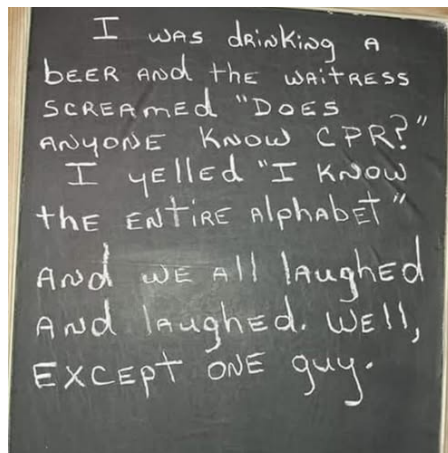 I was drinking a
beer and the waitress
screamed "Does
anyone know CPR?"
I yelled "I know
the entire alphabet"
And we all laughed
and laughed. Well,
except one guy.